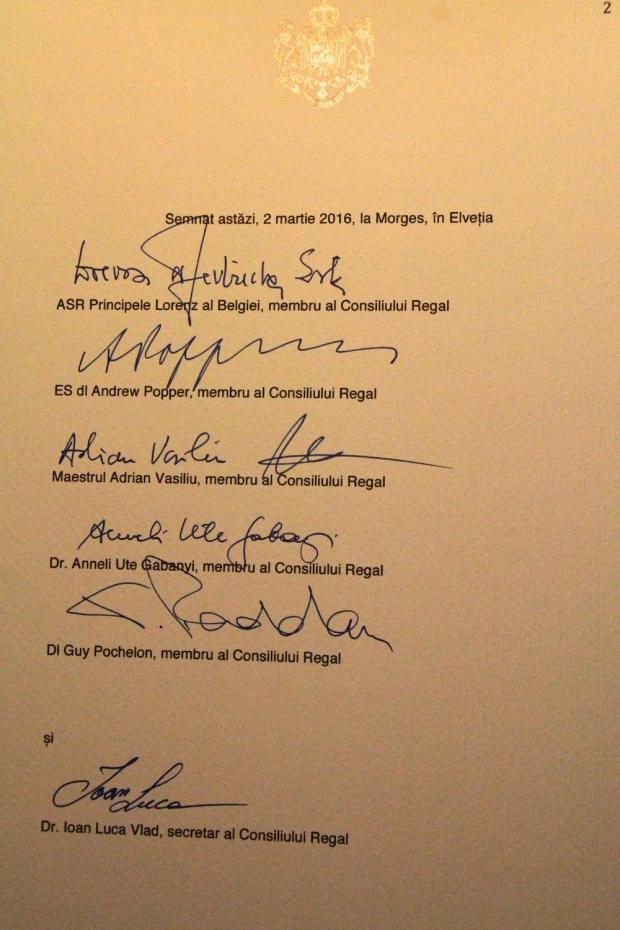 2
Semnat astăzi, 2 martie 2016, la Morges, în Elveția
ASR Principele Lorenz al Belgiei, membru al Consiliului Regal
APopper
ES dl Andrew Popper, membru al Consiliului Regal
Adrian Vasiliu
Maestrul Adrian Vasiliu, membru al Consiliului Regal
Anneli Ute Gabanyi
Dr. Anneli Ute Gabanyi, membru al Consiliului Regal
Dl Guy Pochelon, membru al Consiliului Regal
și
Ioan Luca
Dr. Ioan Luca Vlad, secretar al Consiliului Regal